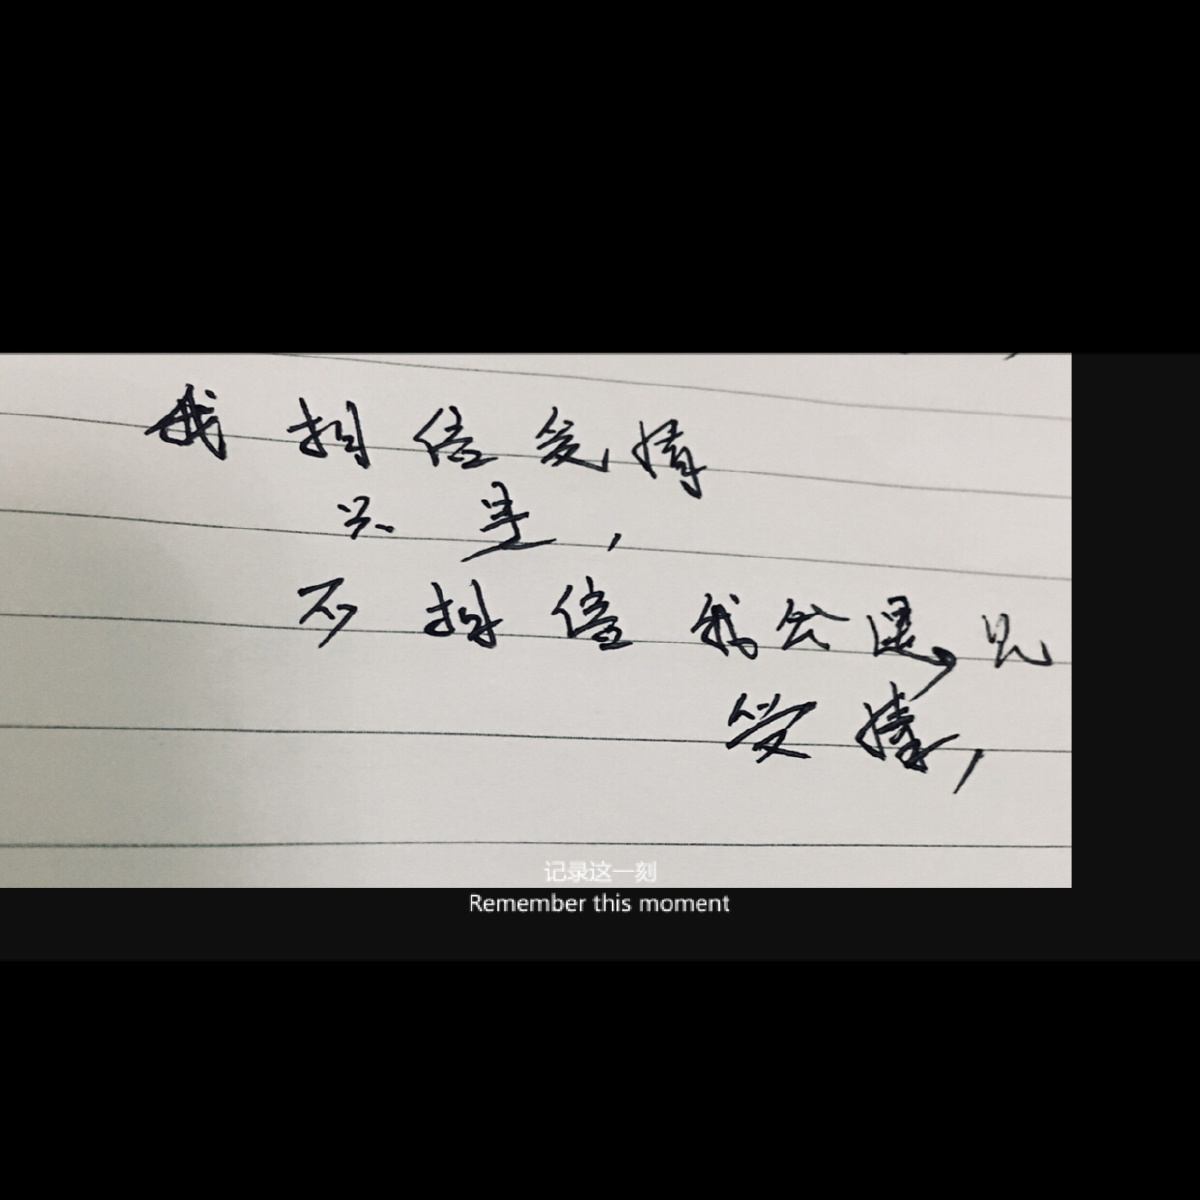 我相信爱情
只是，
不相信我会遇见
爱情，
记录这一刻
Remember this moment